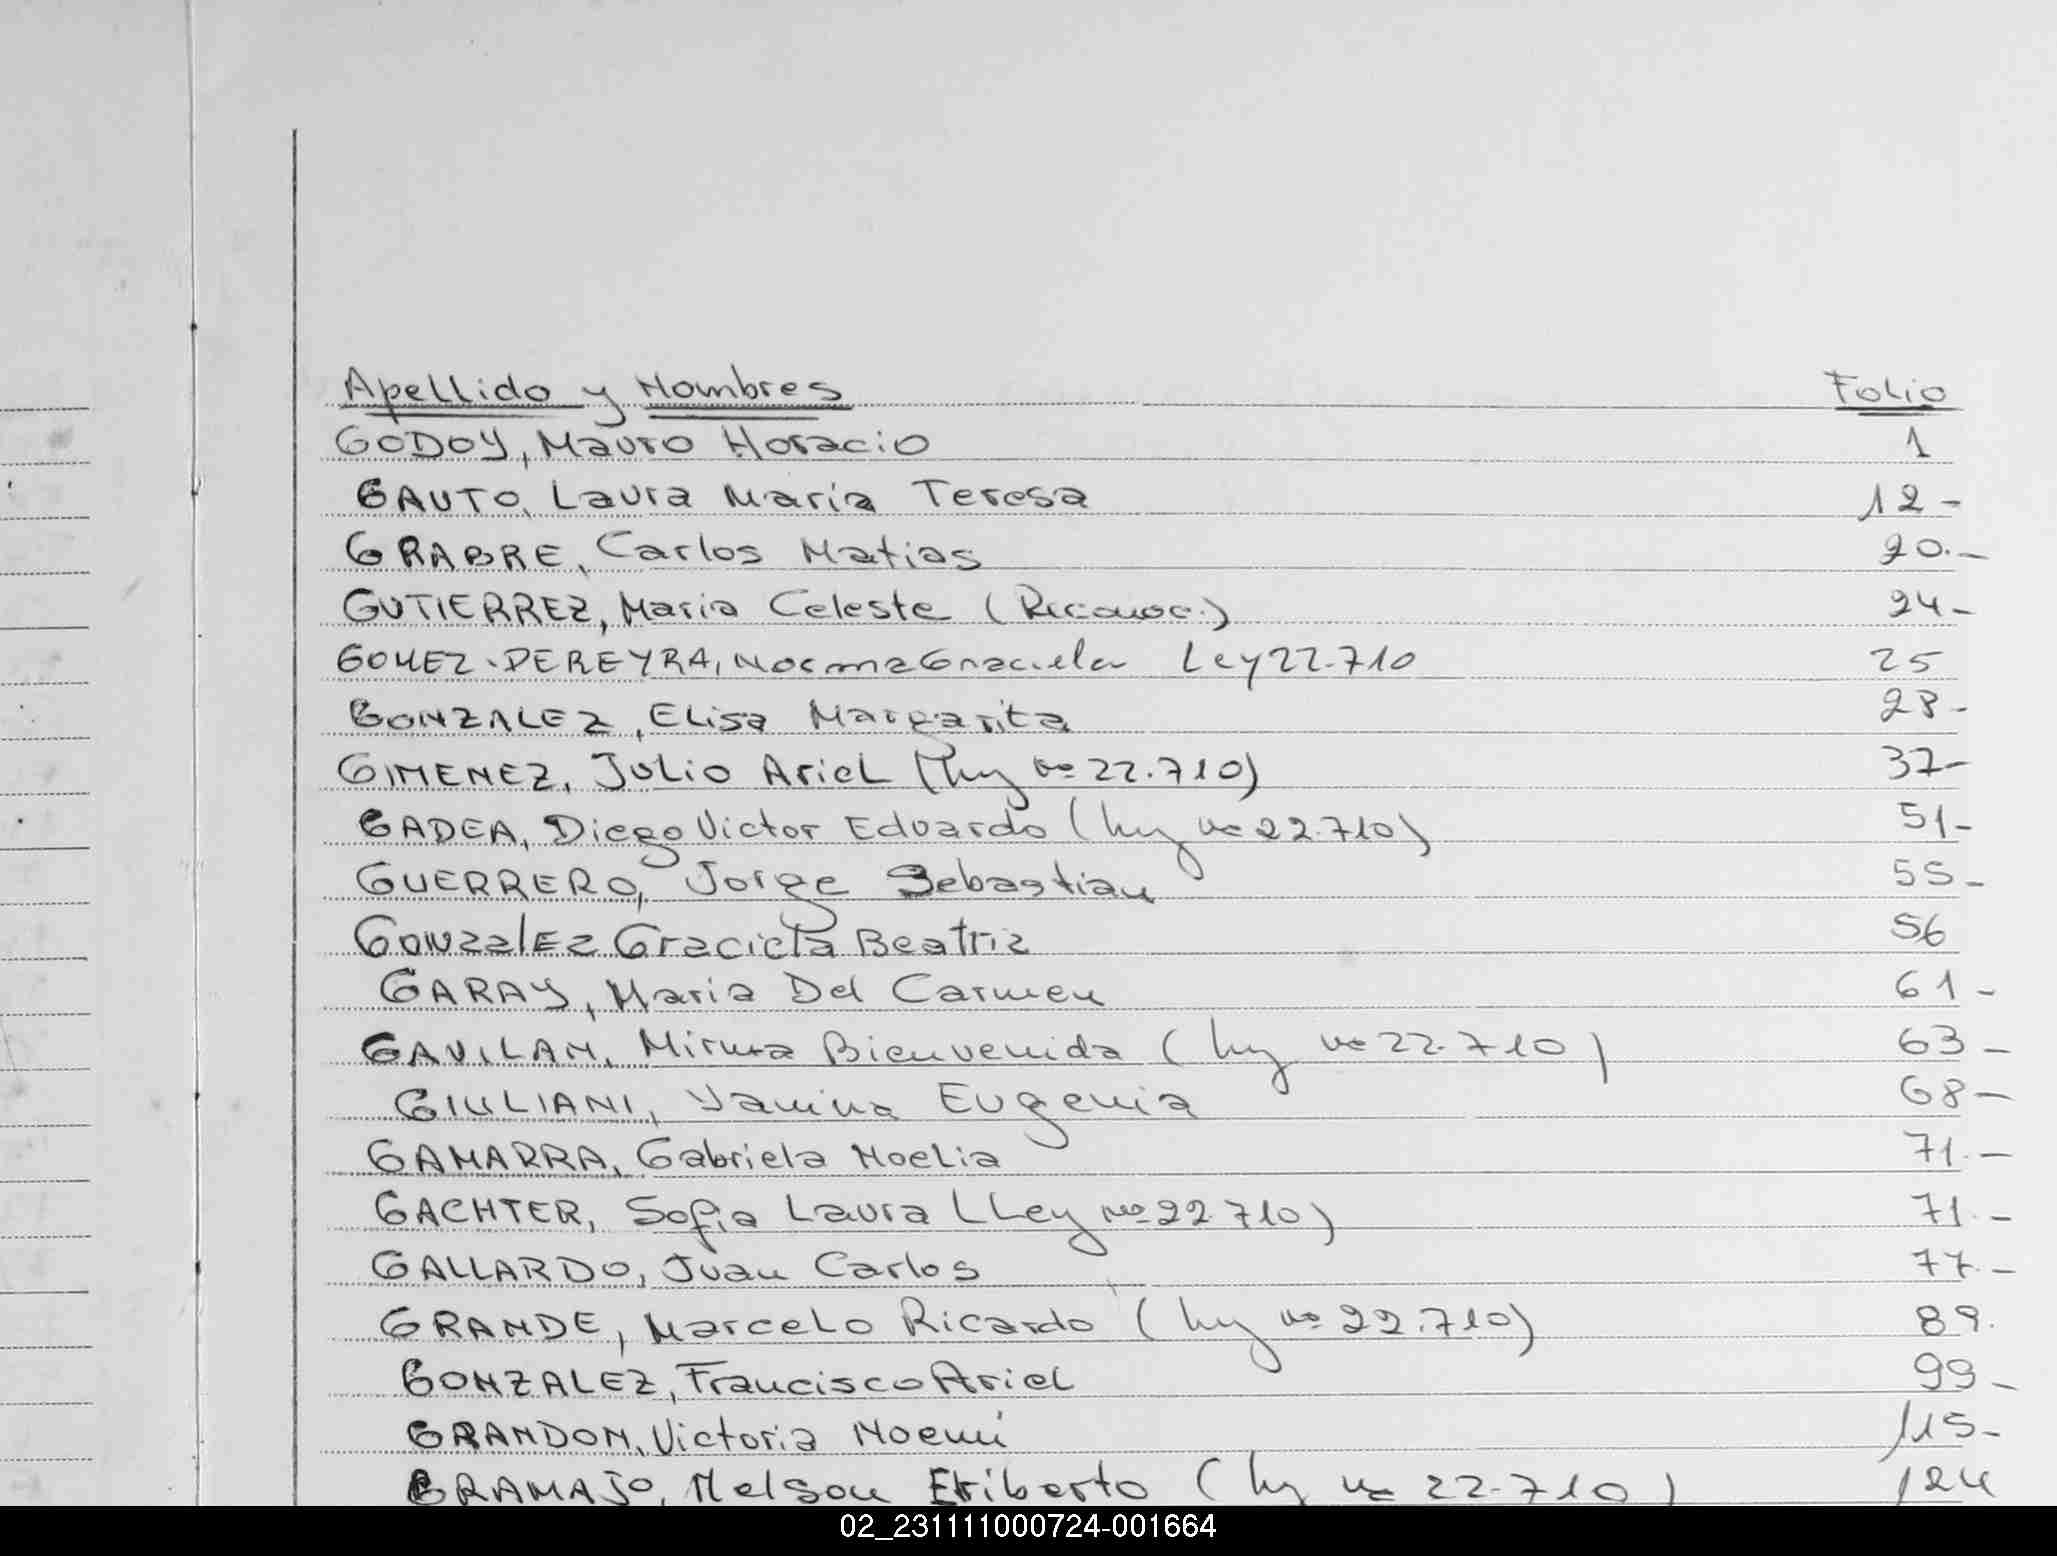 Apellido y Nombres Folio
GODOY, Mauro Horacio 1
GAUTO, Laura Maria Teresa 12-
GRABRE, Carlos Matias 20.-
GUTIERREZ, Maria Celeste (Reconoc.) 24-
GOMEZ-PEREYRA, Norma Graciela Ley 22.710 25
GONZALEZ, Elisa Margarita 28-
GIMENEZ, Julio Ariel (Ley nº 22.710) 37-
GADEA, Diego Victor Eduardo (Ley nº 22.710) 51-
GUERRERO, Jorge Sebastian 55-
GONZALEZ Graciela Beatriz 56
GARAY, Maria Del Carmen 61-
GAVILAN, Mirna Bienvenida (Ley nº 22.710) 63-
GIULIANI, Yanina Eugenia 68-
GAMARRA, Gabriela Noelia 71.-
GACHTER, Sofia Laura (Ley nº 22.710) 71.-
GALLARDO, Juan Carlos 77.-
GRANDE, Marcelo Ricardo (Ley nº 22.710) 89.
GONZALEZ, Francisco Ariel 99-
GRANDON, Victoria Noemí 115-
GRAMAJO, Nelson Eriberto (Ley nº 22.710) 124
02_231111000724-001664